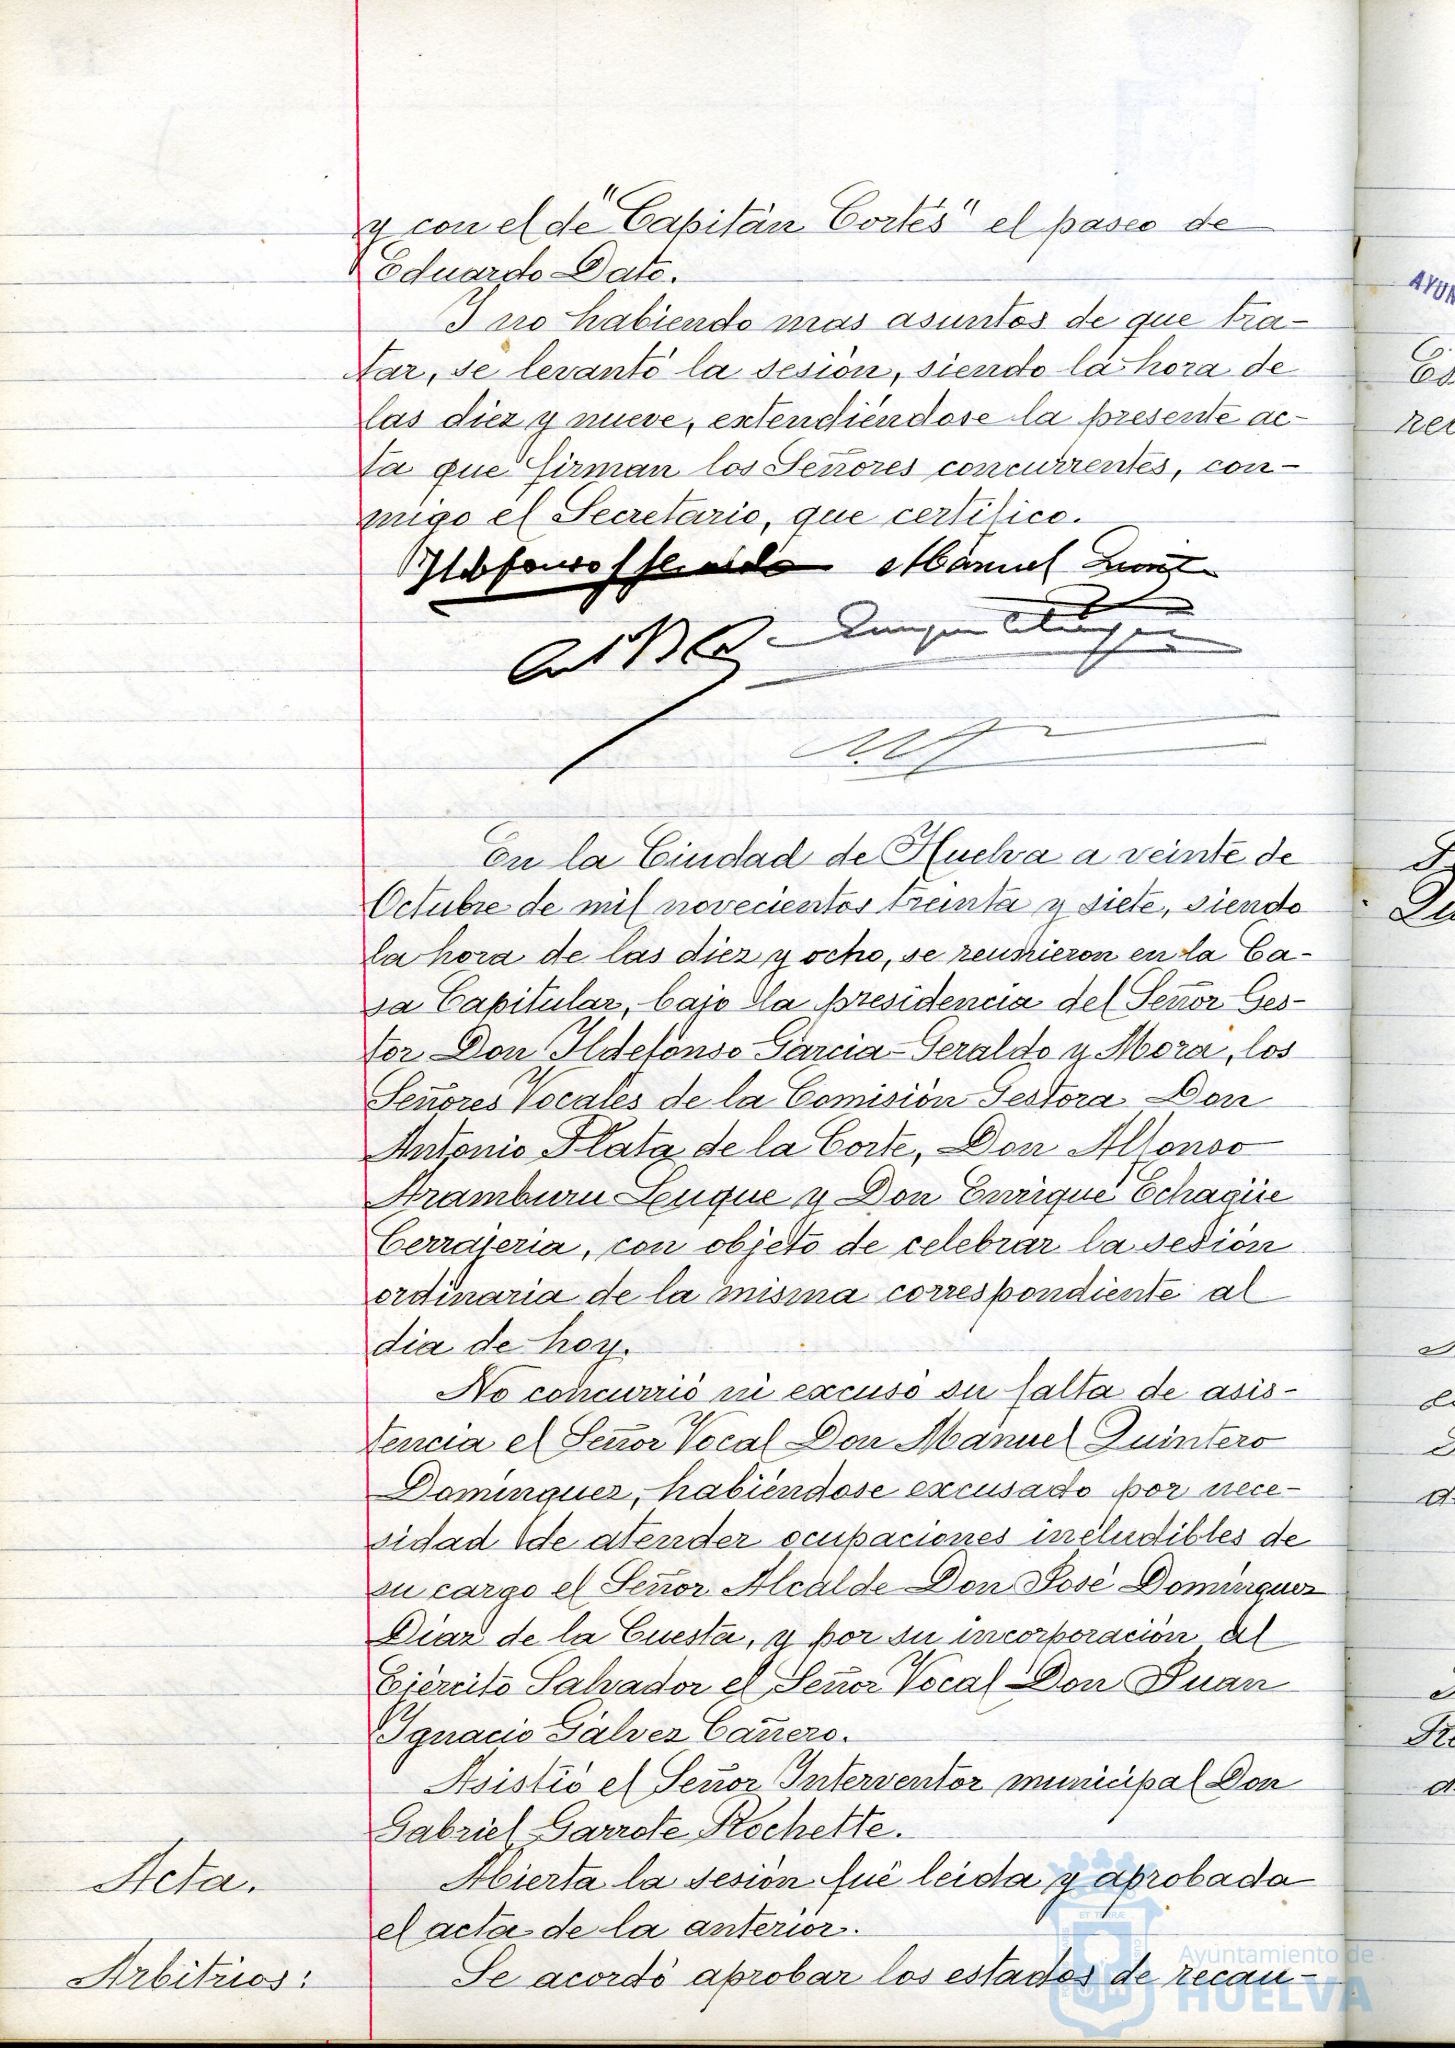 y con el de "Capitán Cortés" el paseo de
Eduardo Dato.
Y no habiendo mas asuntos de que tra-
tar, se levantó la sesión, siendo la hora de
las diez y nueve, extendiéndose la presente ac-
ta que firman los Señores concurrentes, con-
migo el Secretario, que certifico.
Manuel
En la Ciudad de Huelva a veinte de
Octubre de mil novecientos treinta y siete, siendo
la hora de las diez y ocho, se reunieron en la Ca-
sa Capitular, bajo la presidencia del Señor Ges-
tor Don Ildefonso Garcia-Geraldo y Mora, los
Señores Vocales de la Comisión Gestora Don
Antonio Plata de la Corte, Don Alfonso
Aramburu Luque y Don Enrique Echagüe
Cerrajeria, con objeto de celebrar la sesión
ordinaria de la misma correspondiente al
dia de hoy.
No concurrió ni excusó su falta de asis-
tencia el Señor Vocal Don Manuel Quintero
Dominguez, habiéndose excusado por nece-
sidad de atender ocupaciones ineludibles de
su cargo el Señor Alcalde Don José Dominguez
Diaz de la Cuesta, y por su incorporación al
Ejército Salvador el Señor Vocal Don Juan
Ignacio Gálvez Cañero.
Asistió el Señor Interventor municipal Don
Gabriel Garrote Rochette.
Acta.
Abierta la sesión fué leida y aprobada
el acta de la anterior.
Arbitrios:
Se acordó aprobar los estados de recau-
Ayuntamiento de
HUELVA